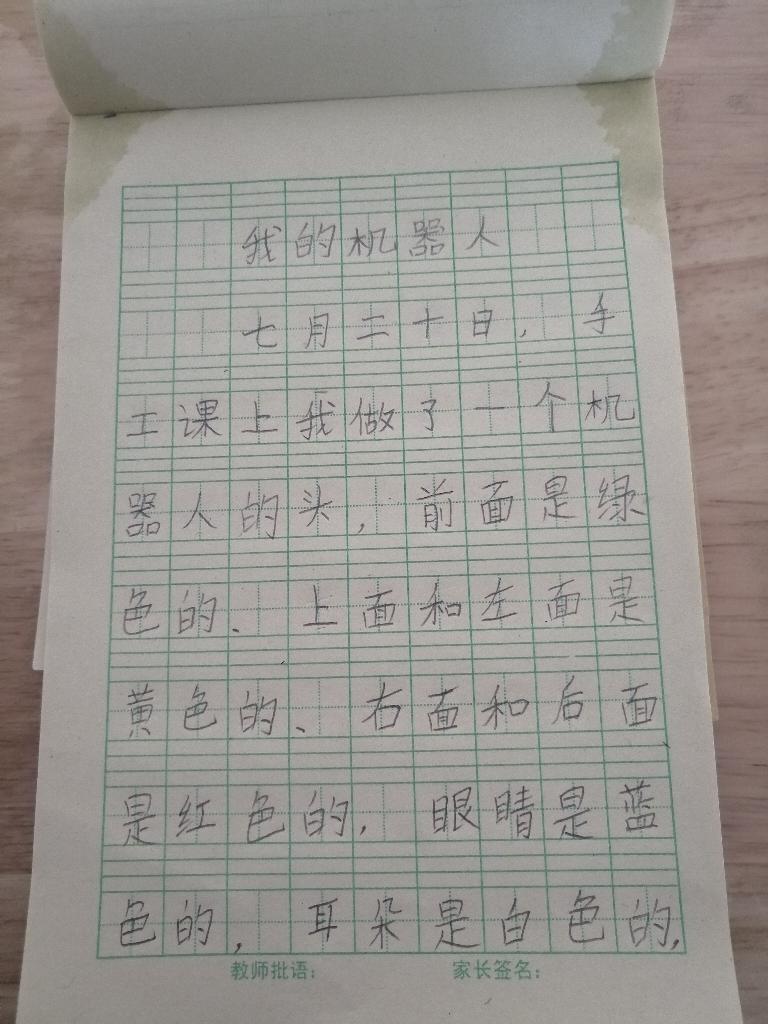 我的机器人
七月二十日,手
工课上我做了一个机
器人的头,前面是绿
色的、上面和左面是
黄色的、右面和后面
是红色的,眼睛是蓝
色的,耳朵是白色的,
教师批语: 家长签名: